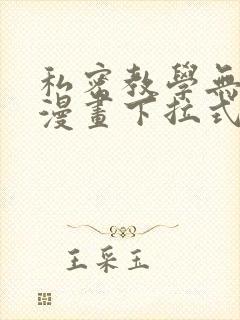 私密教學無
漫畫下拉式
王采玉